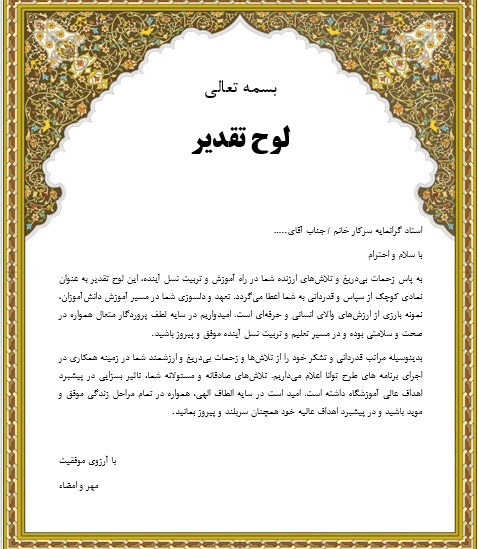 بسمه تعالی
لوح تقدیر
استاد گرانمایه سرکار خانم / جناب آقای.....
با سلام و احترام
به پاس زحمات بی‌دریغ و تلاش‌های ارزنده شما در راه آموزش و تربیت نسل آینده، این لوح تقدیر به عنوان
نمادی کوچک از سپاس و قدردانی به شما اعطا می‌گردد. تعهد و دلسوزی شما در مسیر آموزش دانش‌آموزان،
نمونه بارزی از ارزش‌های والای انسانی و حرفه‌ای است. امیدواریم در سایه لطف پروردگار متعال همواره در
صحت و سلامتی بوده و در مسیر تعلیم و تربیت نسل آینده موفق و پیروز باشید.
بدینوسیله مراتب قدردانی و تشکر خود را از تلاش‌ها و زحمات بی‌دریغ و ارزشمند شما در زمینه همکاری در
اجرای برنامه های طرح توانا اعلام می‌داریم. تلاش‌های صادقانه و مسئولانه شما، تاثیر بسزایی در پیشبرد
اهداف عالی آموزشگاه داشته است. امید است در سایه الطاف الهی، همواره در تمام مراحل زندگی موفق و
موید باشید و در پیشبرد اهداف عالیه خود همچنان سربلند و پیروز بمانید.
با آرزوی موفقیت
مهر و امضاء